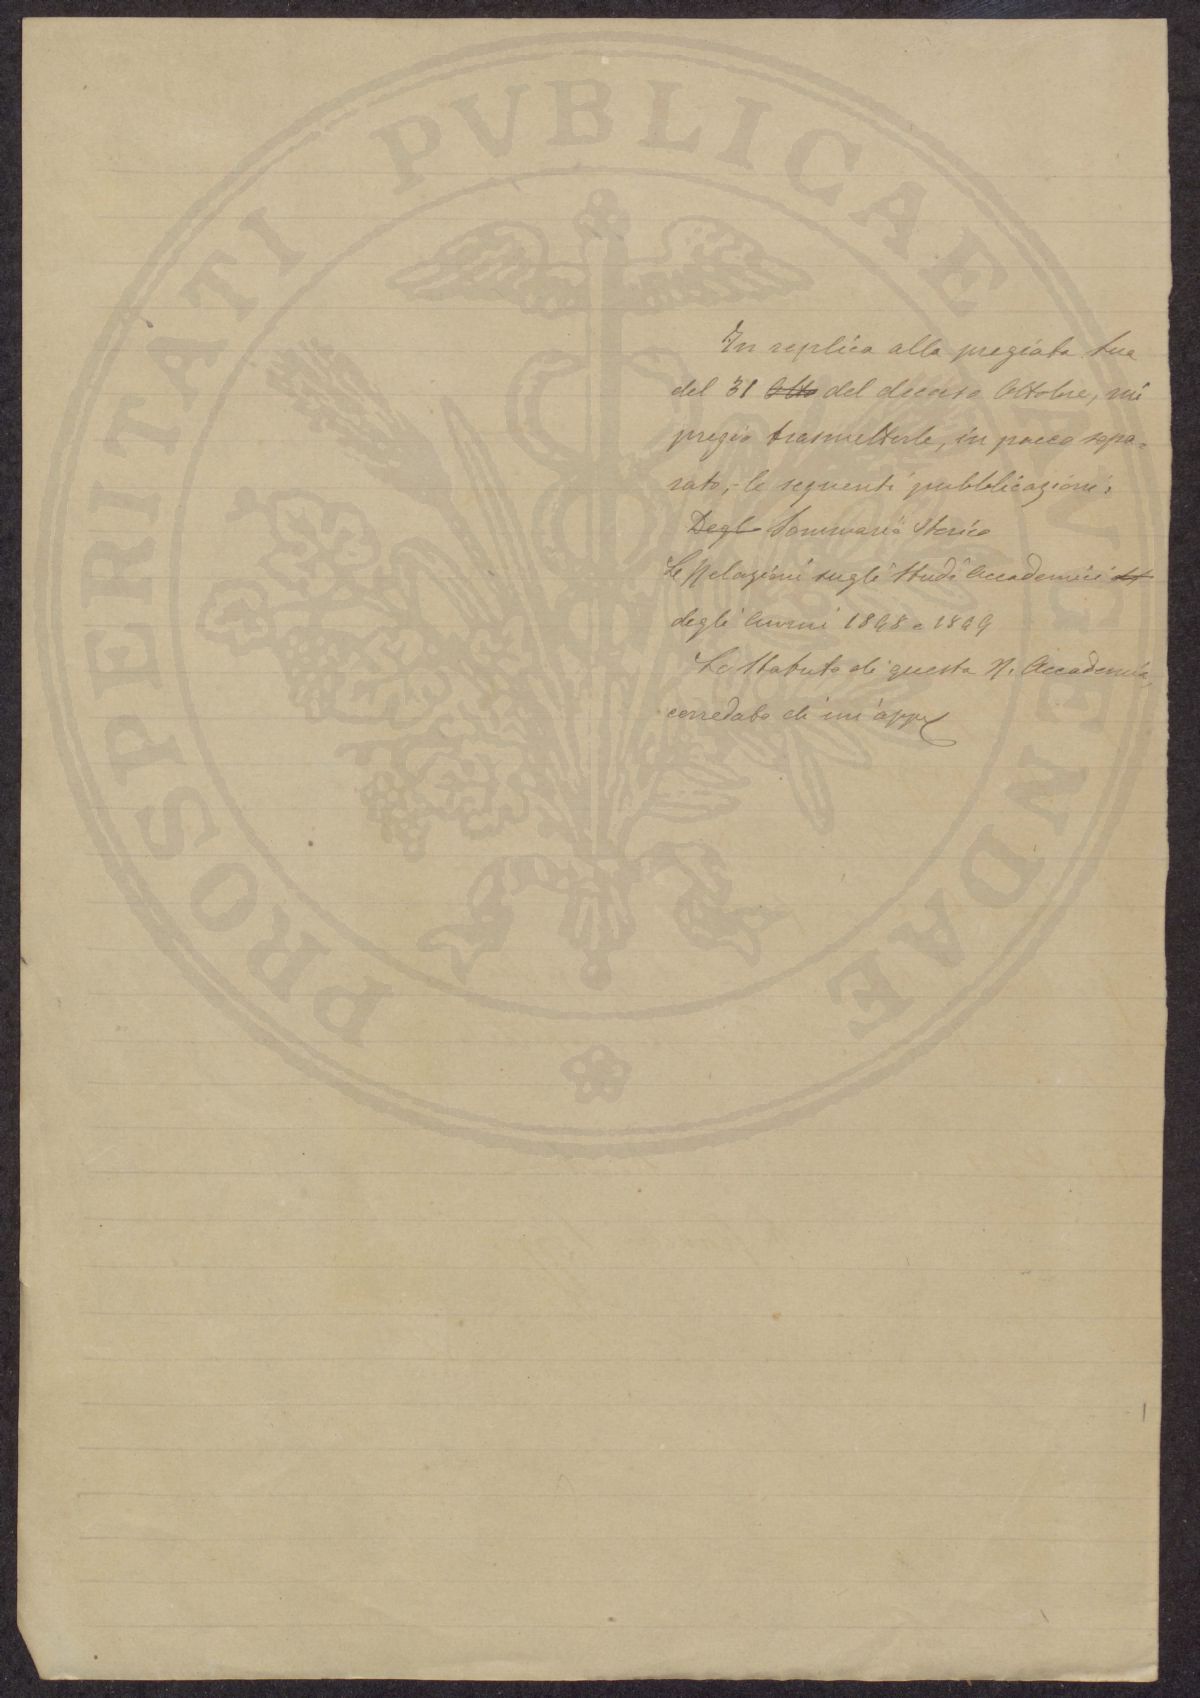 PROSPERITATI PVBLICAE AVGENDAE
In replica alla pregiata sua
del 31 Otto del decorso Ottobre, mi
pregio trasmetterle, in pacco sepa-
rato, le seguenti pubblicazioni:
Degl Sommario Storico
Le Relazioni sugli Studi Accademici
degli Anni 1898 e 1899
Lo Statuto di questa R. Accademia,
corredato di un'app